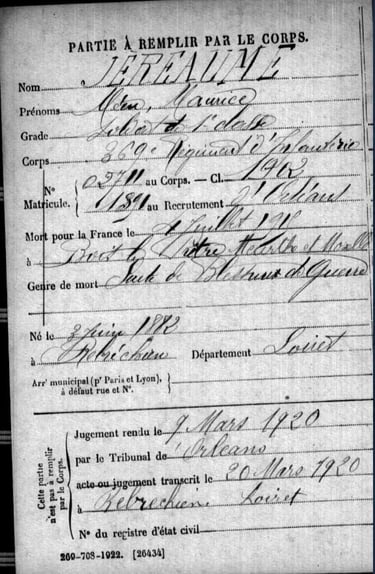 PARTIE À REMPLIR PAR LE CORPS.
Nom JEREAUME
Prénoms Maurice
Grade Soldat de 1e classe
Corps 369e Régiment d'Infanterie
N° Matricule. { 02711 au Corps. — Cl. 1902
1891 au Recrutement d'Orléans
Mort pour la France le Juillet 1915
à Bois le Prêtre Meurthe et Moselle
Genre de mort Suite de Blessures de Guerre
Né le 3 Juin 1882
à Rebréchien Département Loiret
Arrt municipal (pr Paris et Lyon), à défaut rue et N°. {
Cette partie n'est pas à remplir par le Corps.
Jugement rendu le 9 Mars 1920
par le Tribunal de Orléans
acte ou jugement transcrit le 20 Mars 1920
à Rebrechien Loiret
N° du registre d'état civil
269-708-1922. [26434]